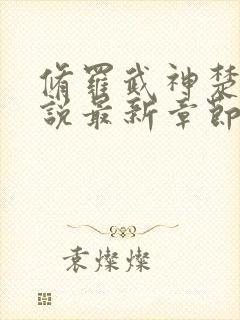 脩羅武神楚
說最新章節
袁燦燦